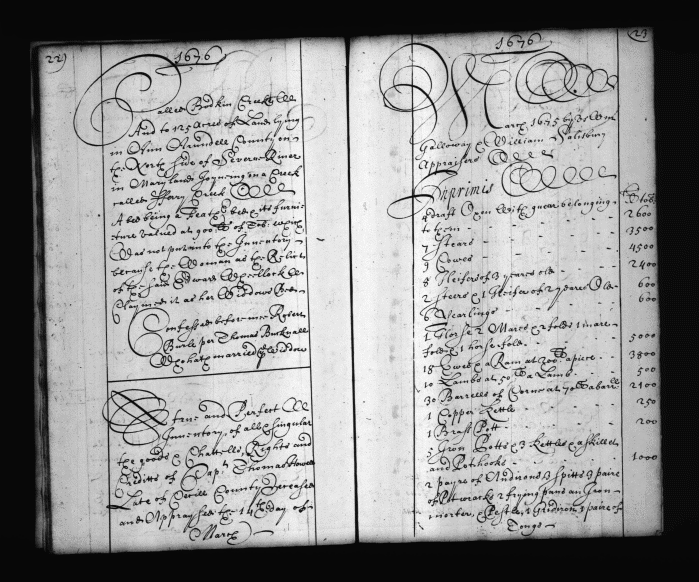 229
1676
called Bodkin Creeke
And to 125 Acres of Land lying
in Ann Arundell County on
the North side of Severne River
in Maryland Joyneing on a Creek
called Creek
A bed being a feather bed & its furni-
ture valued at 900 lb of Tob. which
was not put into the Inventory
because the Woman as the Relict
of the said Edward
Claymed it as her Widdows Bed
Confessed before mee Robert
Burle per Thomas Bucknall
Who hath married the Widdow
A true and Perfect
Inventory of all & singular
the goods & Chattells, Rights and
Creditts of Capt. Thomas Howell
Late of Cecill County deceased
and Appraysed the 14th day of
March
23
1676
March 1675 by us Wm
Galloway & William Salsbury
Appraisers
Inprimis
lb Tob
4 draft Oxen with gear belonging
to them 2600
7 Stears 3500
9 Cowes 4500
8 Heifers of 3 yeares old 2400
2 steers & 1 Heifer of 2 yeares Old 600
6 Yearlings 600
1 Horse 2 Mares & 2 folds 1 mare
fold & 1 horse fold 5000
18 Ewes & a Ram at 200 lb a piece 3800
10 Lambs at 50 lb a Lamb 500
30 Barrells of Corne at 70 lb a barll 2100
1 Copper Kettle 250
1 Brass Pott 200
5 Iron Potts & 3 Kettles a skillet
and Pothooks 1000
2 payre of Andirons 3 spitts 3 paire
of Pottracks 2 frying pans an Iron
morter, & Pestle, 1 Gridiron 1 paire of
Tongs